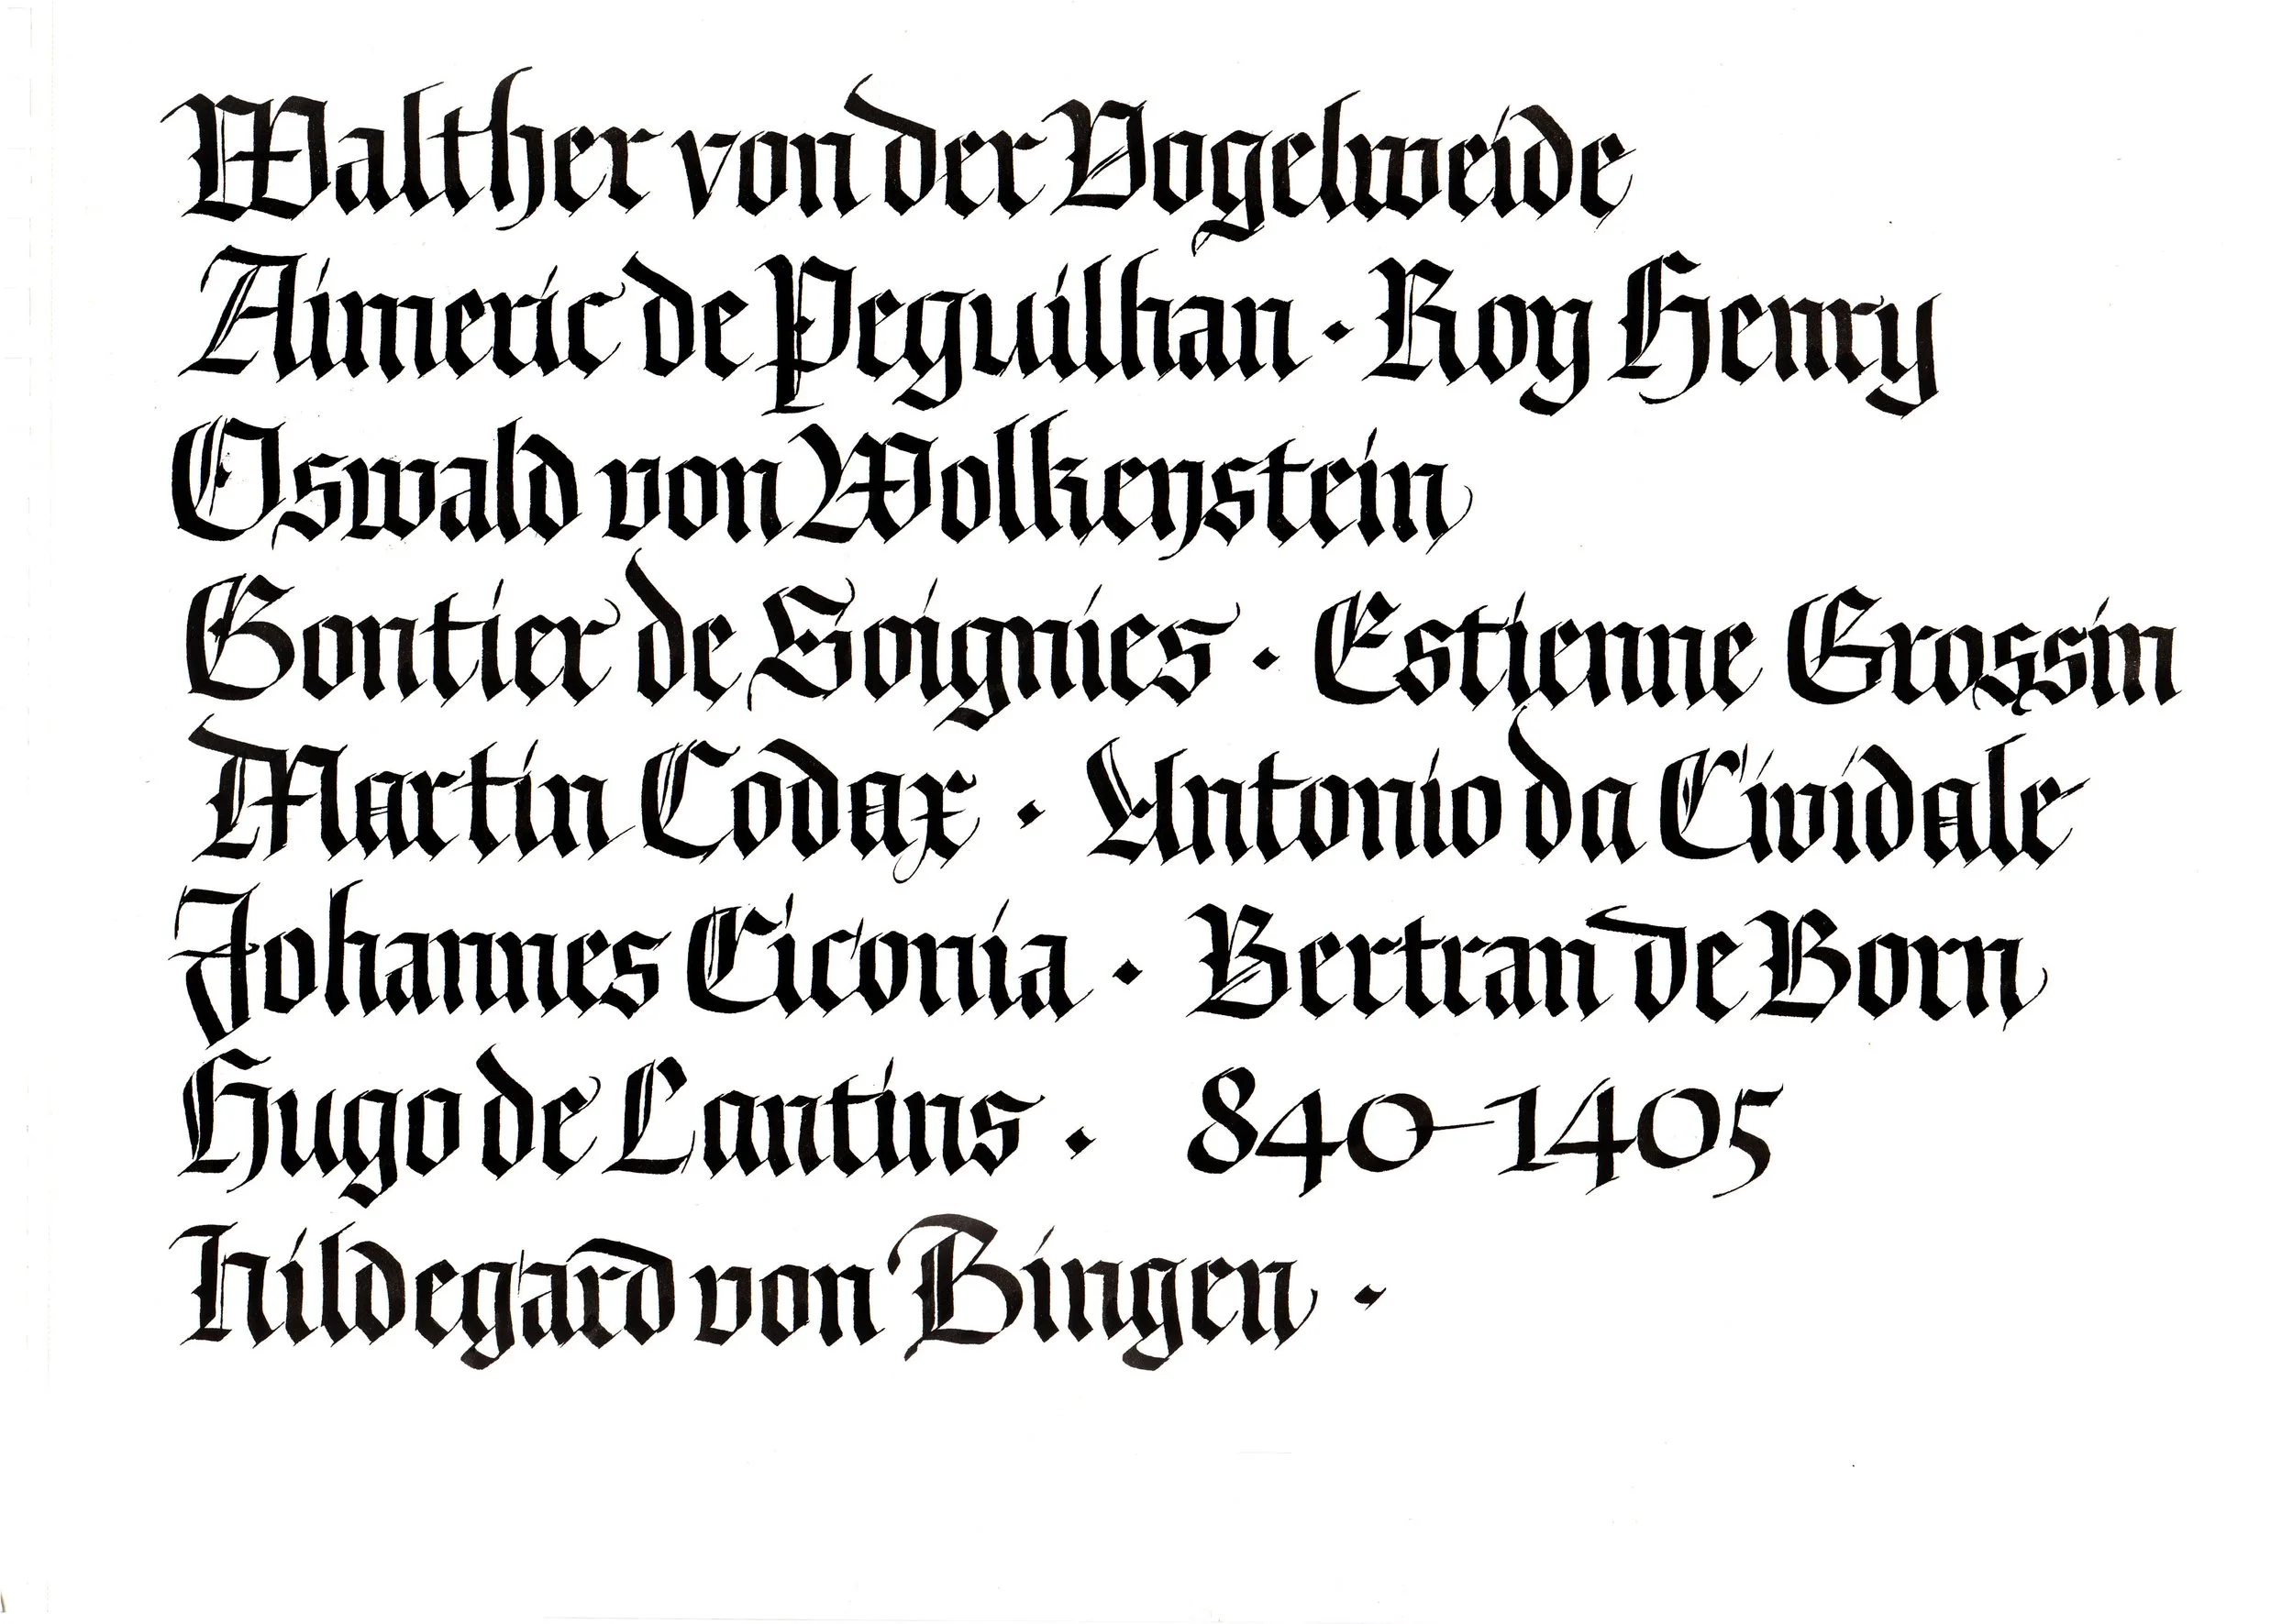 Walther von der Vogelweide
Aimeric de Peguilhan · Roy Henry
Oswald von Wolkenstein
Gontier de Soignies · Estienne Grossin
Martin Codax · Antonio da Cividale
Johannes Ciconia · Bertran de Born
Hugo de Lantins · 840-1405
Hildegard von Bingen ·